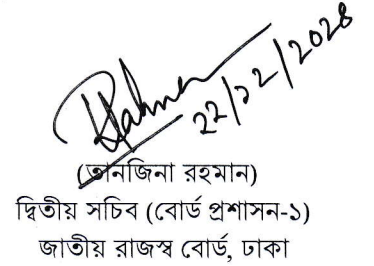 Rahman
২২/১২/২০২৪
(তানজিনা রহমান)
দ্বিতীয় সচিব (বোর্ড প্রশাসন-১)
জাতীয় রাজস্ব বোর্ড, ঢাকা